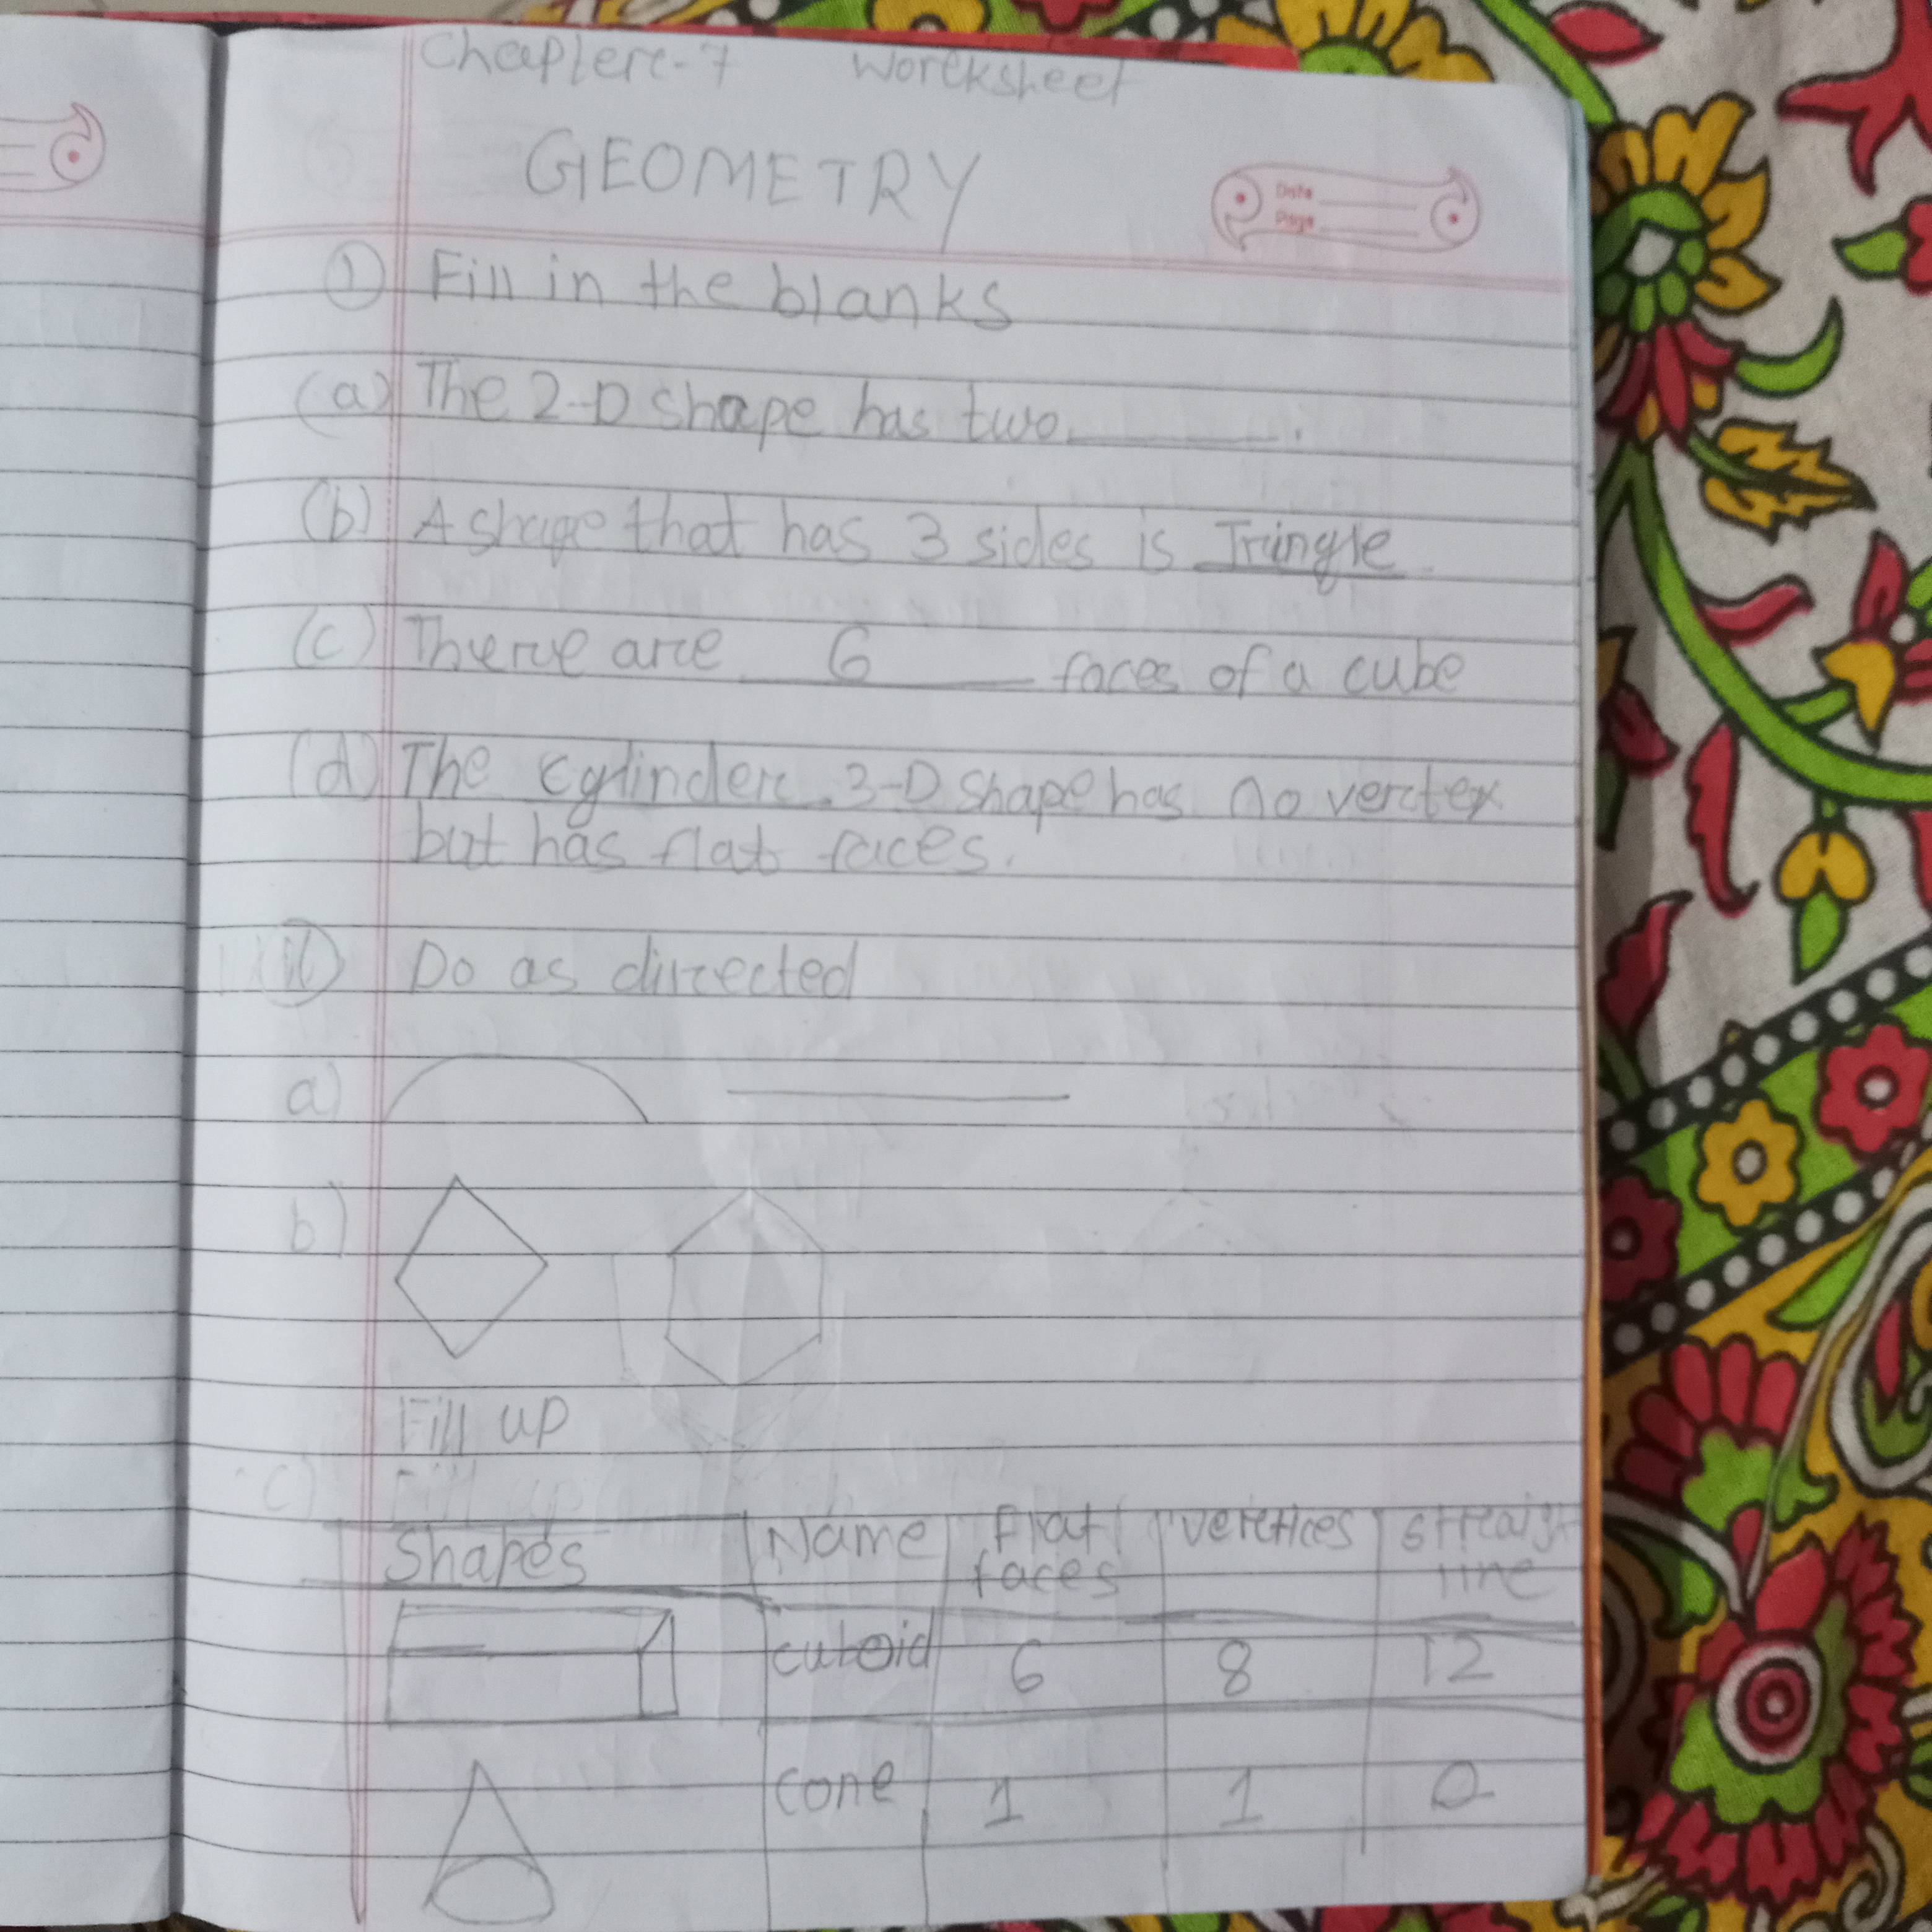 Chapter-7 Worksheet
GEOMETRY
Date
Page
1 Fill in the blanks
(a) The 2-D shape has two ________.
(b) A shape that has 3 sides is Tringle
(c) There are 6 faces of a cube
(d) The cylinder 3-D shape has no vertex
but has flat faces.
II Do as directed
a)
b)
Fill up
c) Fill up
Shapes Name Flat faces vertices straight line
cuboid 6 8 12
cone 1 1 0